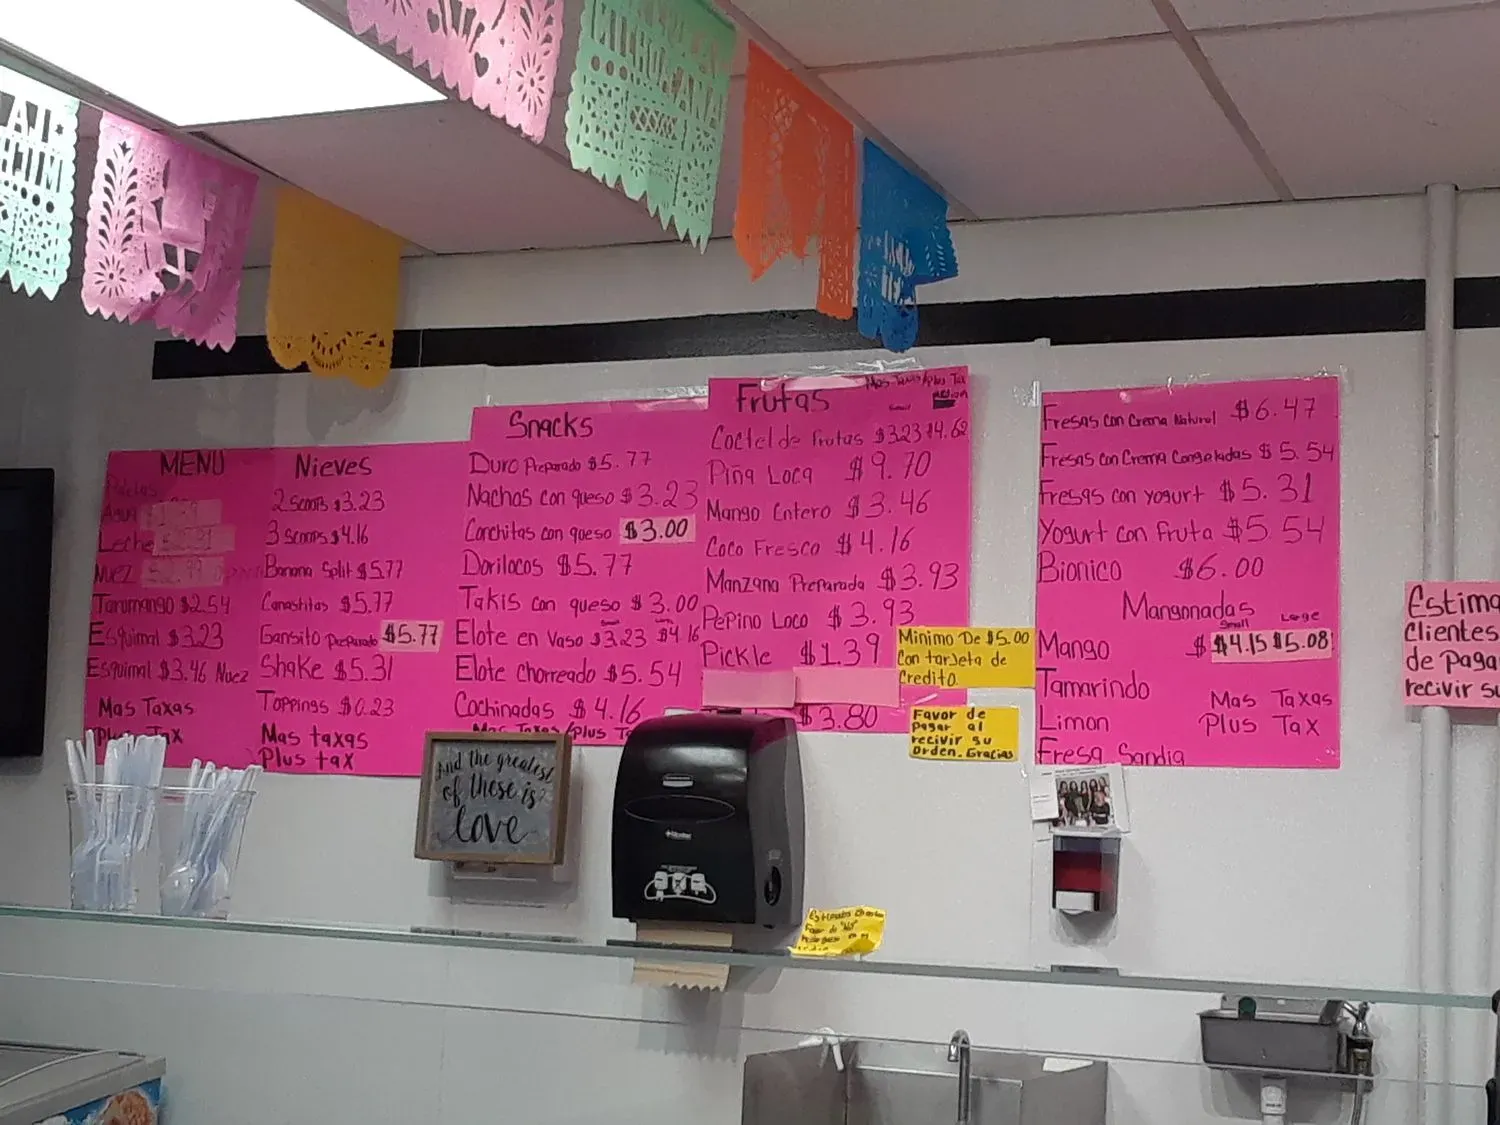 MICHOACANA
MENU
Paletas
Agua
Leche
Nuez
Tarumango $2.54
Esquimal $3.23
Esquimal $3.46 Nuez
Mas Taxas
Plus Tax
Nieves
2 Scoops $3.23
3 Scoops $4.16
Banana Split $5.77
Canastitas $5.77
Gansito Preparado $5.77
Shake $5.31
Toppings $0.23
Mas taxas
Plus tax
Snacks
Duro Preparado $5.77
Nachos con queso $3.23
Conchitas con queso $3.00
Dorilocos $5.77
Takis con queso $3.00
Elote en Vaso $3.23 $4.16
Elote Chorreado $5.54
Cochinadas $4.16
Mas Taxes/Plus Ta
Frutas
Mas Taxas/plus Tax
Small
Coctel de frutas $3.23 $4.62
Piña Loca $9.70
Mango Entero $3.46
Coco Fresco $4.16
Manzana Preparada $3.93
Pepino Loco $3.93
Pickle $1.39
$3.80
Minimo De $5.00
Con tarjeta de
Credito.
Favor de
Pagar al
recivir su
Orden. Gracias
Fresas con Crema Natural $6.47
Fresas Con Crema Congeladas $5.54
Fresas con yogurt $5.31
Yogurt con Fruta $5.54
Bionico $6.00
Mangonadas
Small Large
Mango $ $4.15 $5.08
Tamarindo
Limon
Fresa Sandia
Mas Taxas
Plus Tax
Estima
Clientes
de Paga
recivir su
And the greatest
of these is
love